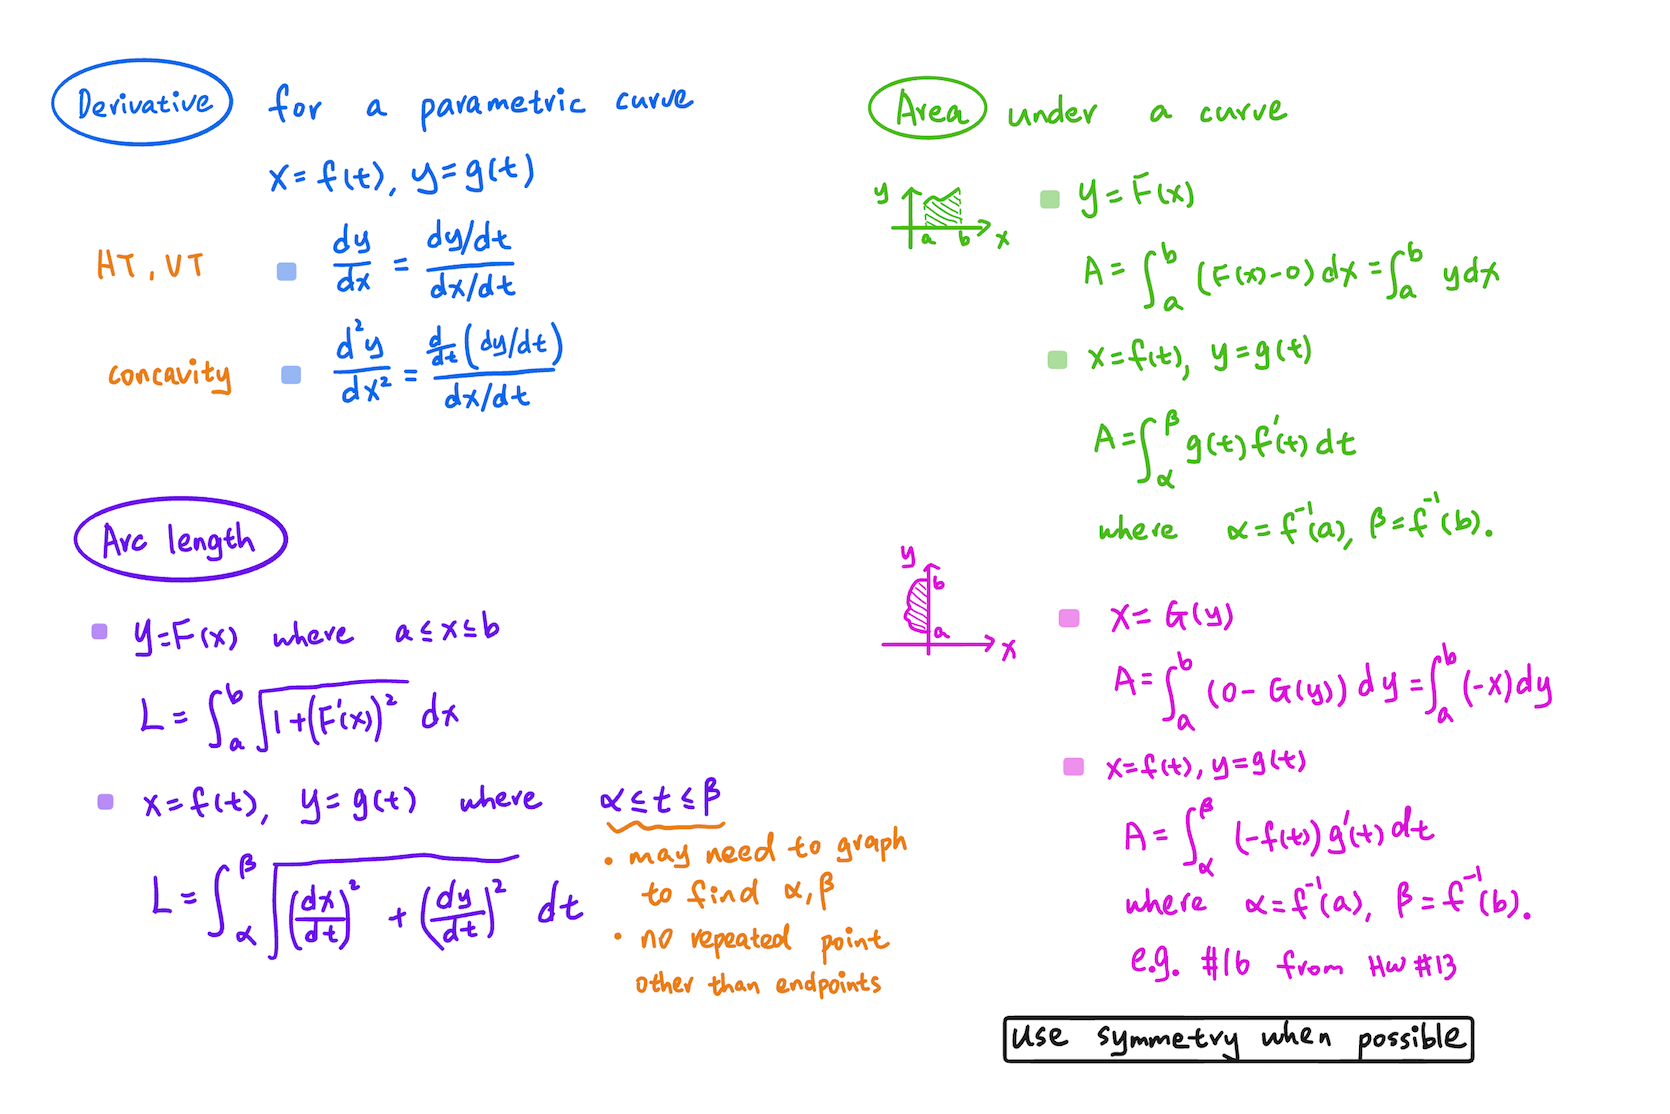 Derivative for a parametric curve
x = f(t), y = g(t)
HT, VT dy/dx = (dy/dt)/(dx/dt)
concavity d²y/dx² = (d/dt (dy/dt))/(dx/dt)
Arc length
y = F(x) where a ≤ x ≤ b
L = ∫_a^b √(1+(F'(x))²) dx
x = f(t), y = g(t) where α ≤ t ≤ β
• may need to graph
to find α, β
L = ∫_α^β √((dx/dt)² + (dy/dt)²) dt
• no repeated point
other than endpoints
Area under a curve
y
a b x
y = F(x)
A = ∫_a^b (F(x)-0) dx = ∫_a^b y dx
x = f(t), y = g(t)
A = ∫_α^β g(t) f'(t) dt
where α = f⁻¹(a), β = f⁻¹(b).
y
b
a
x
x = G(y)
A = ∫_a^b (0 - G(y)) dy = ∫_a^b (-x) dy
x = f(t), y = g(t)
A = ∫_α^β (-f(t)) g'(t) dt
where α = f⁻¹(a), β = f⁻¹(b).
e.g. #16 from HW #13
Use symmetry when possible